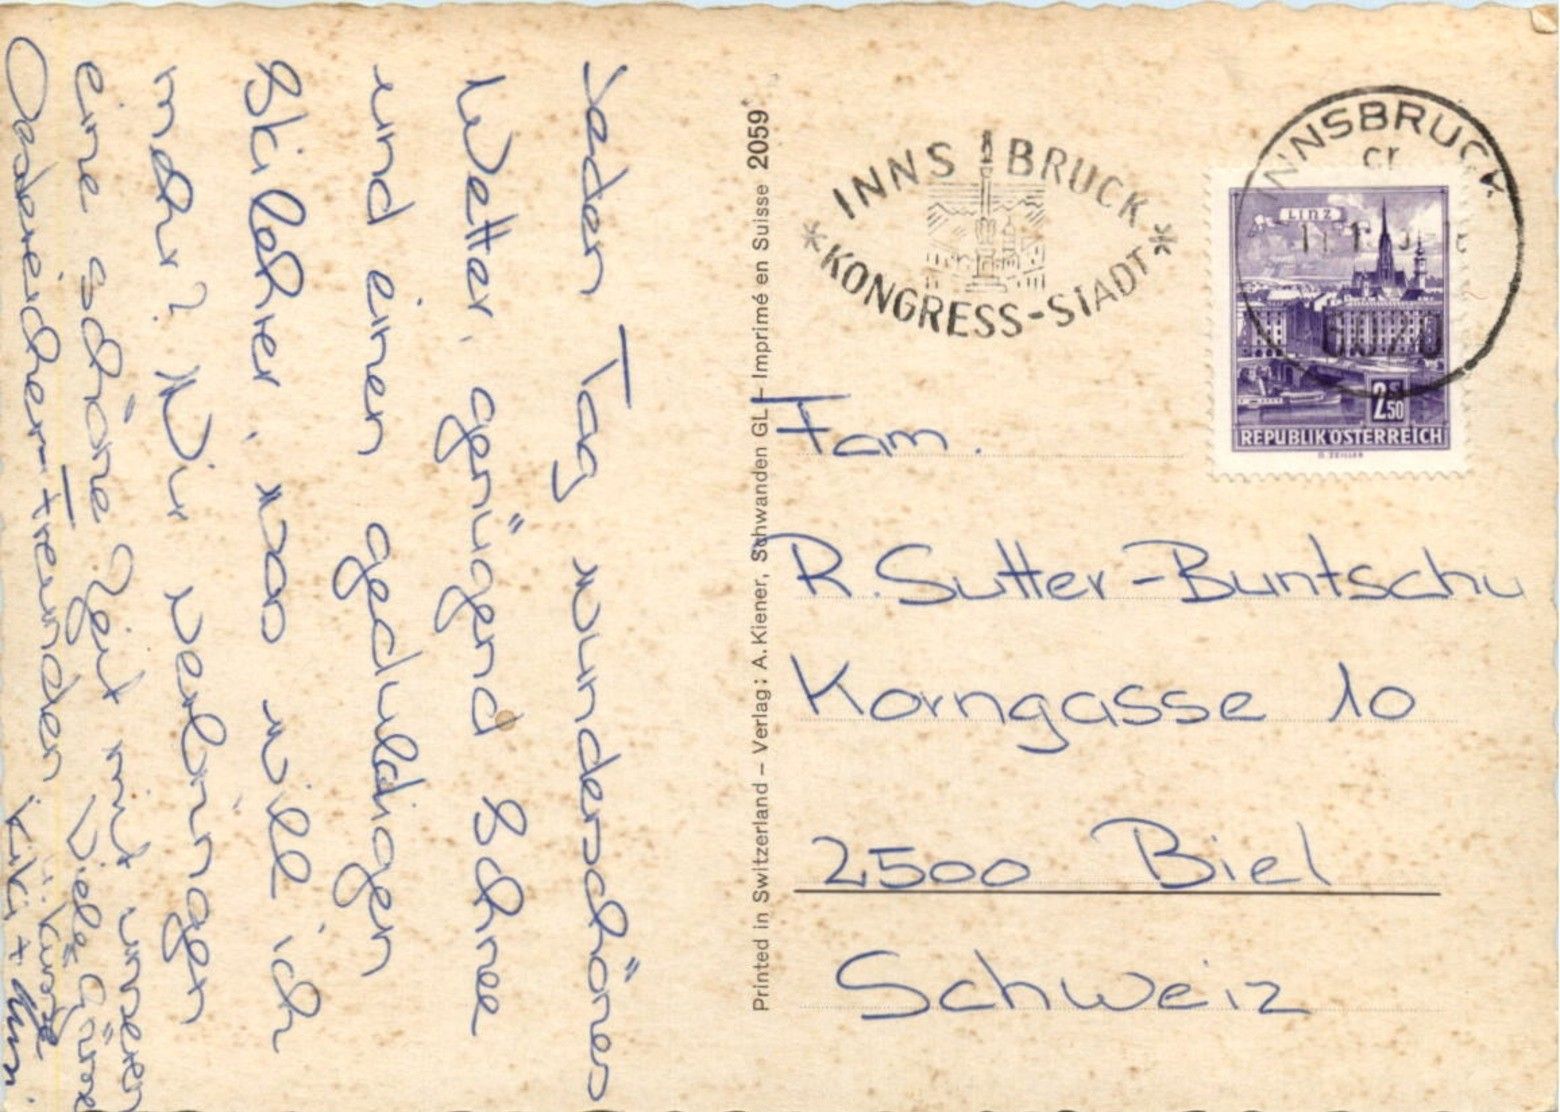 Jeden Tag wunderschönes
Wetter, genügend Schnee
und einen geduldigen
Skilehrer, was will ich
mehr? Wir verbringen
eine schöne Zeit mit unseren
Oesterreicher-Freunden. Viele Grüsse
u. Küsse
Kiki +
Printed in Switzerland – Verlag: A. Kiener, Schwanden GL – Imprimé en Suisse 2059
INNSBRUCK
KONGRESS-STADT
INNSBRUCK
6020
LINZ
2S50
REPUBLIK ÖSTERREICH
O. ZEILLER
Fam.
R. Sutter-Buntschu
Korngasse 10
2500 Biel
Schweiz